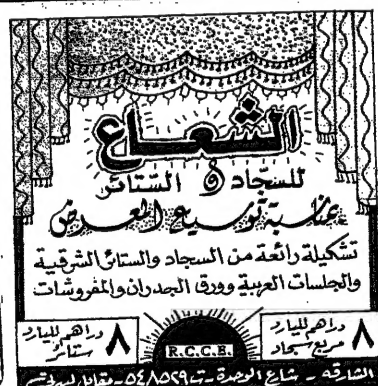 الشعاع
للسجاد و الستائر
بمناسبة توسيع المعرض
تشكيلة رائعة من السجاد والستائر الشرقية
والجلسات العربية وورق الجدران والمفروشات
٨ دراهم لليارد مربع سجاد
٨ دراهم لليارد ستائر
R.C.C.E.
الشارقة - شارع الوحدة - ت ٥٤٨٥٢٩ - مقابل